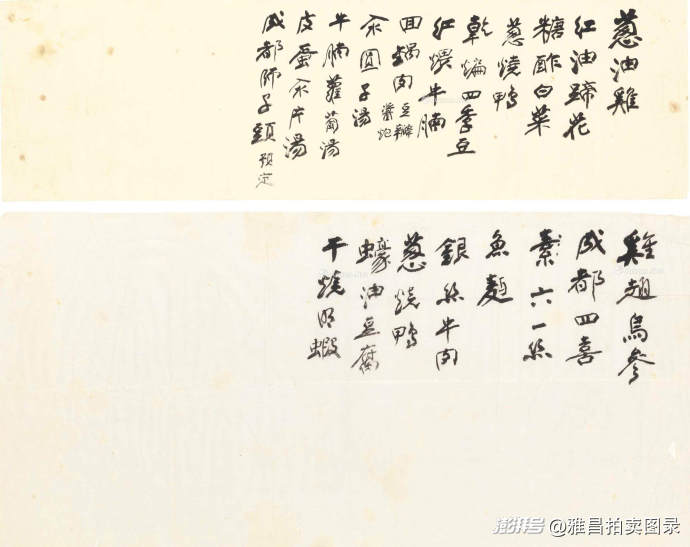 蔥油雞
紅油蹄花
糖酢白菜
蔥燒鴨
乾煸四季豆
紅煨牛腩
回鍋肉 豆瓣醬炮
汆圓子湯
牛腩蘿蔔湯
皮蛋汆片湯
成都師子頭 預定
雞趐烏參
成都四喜
素六一絲
魚麵
銀絲牛肉
蔥燒鴨
蠔油豆腐
干燒明蝦
澎湃号@雅昌拍卖图录